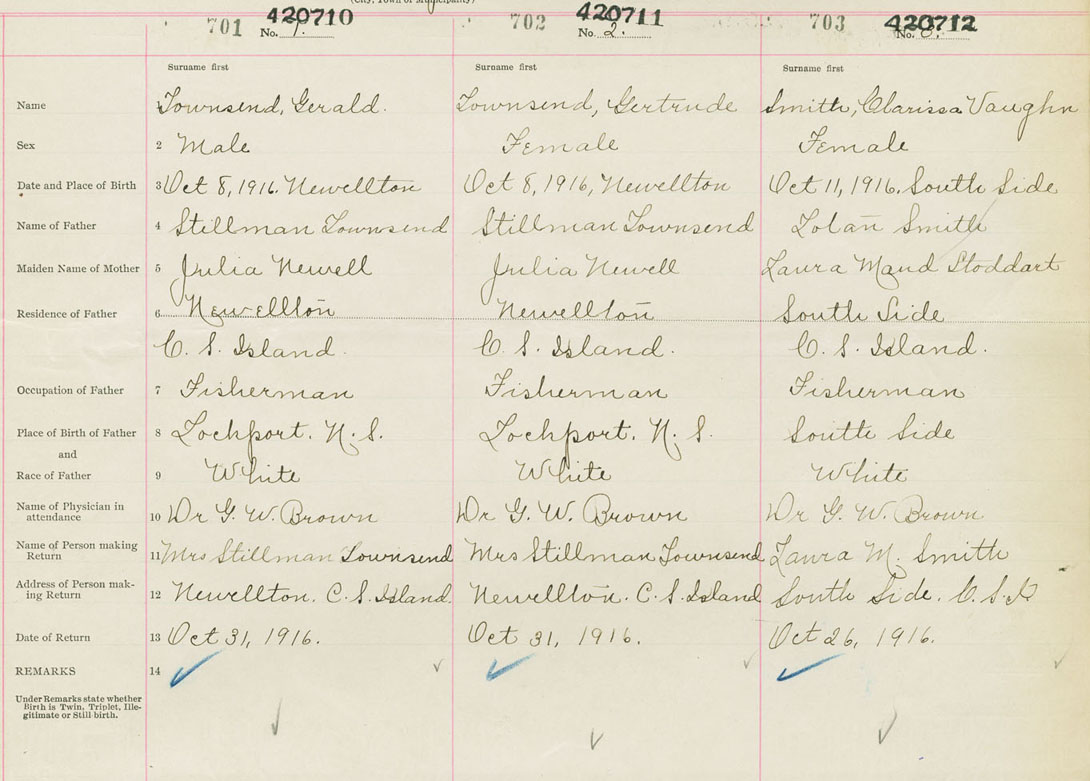 (City, Town or Municipality)
701 420710 702 420711 703 420712
No. 1. No. 2. No. 3.
Surname first Surname first Surname first
Name 1 Townsend, Gerald. Townsend, Gertrude Smith, Clarissa Vaughn
Sex 2 Male Female Female
Date and Place of Birth 3 Oct 8, 1916. Newellton Oct 8, 1916, Newellton Oct 11, 1916. South Side
Name of Father 4 Stillman Townsend Stillman Townsend Lolan Smith
Maiden Name of Mother 5 Julia Newell Julia Newell Laura Maud Stoddart
Residence of Father 6 Newellton Newellton South Side
C. S. Island. C. S. Island. C. S. Island.
Occupation of Father 7 Fisherman Fisherman Fisherman
Place of Birth of Father 8 Lockport. N. S. Lockport. N. S. South Side
and
Race of Father 9 White White White
Name of Physician in
attendance 10 Dr G. W. Brown Dr G. W. Brown Dr G. W. Brown
Name of Person making
Return 11 Mrs Stillman Townsend Mrs Stillman Townsend Laura M. Smith
Address of Person mak-
ing Return 12 Newellton. C. S. Island. Newellton. C. S. Island South Side. C. S. I.
Date of Return 13 Oct 31, 1916. Oct 31, 1916. Oct 26, 1916.
REMARKS 14
Under Remarks state whether
Birth is Twin, Triplet, Ille-
gitimate or Still birth.